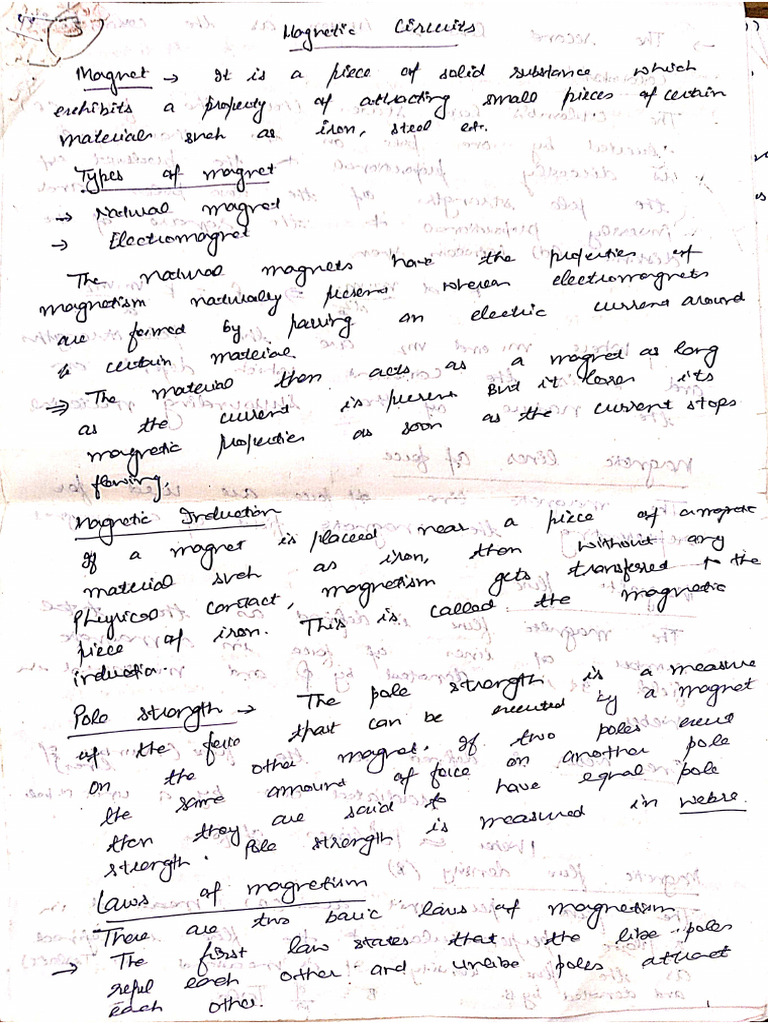 Magnetic Circuits
Magnet → It is a piece of solid substance which
exhibits a property of attracting small pieces of certain
material such as iron, steel etc.
Types of magnet
→ Natural magnet
→ Electromagnet
The natural magnets have the properties of
magnetism naturally present whereas electromagnets
are formed by passing an electric current around
a certain material
⇒ The material then acts as a magnet as long
as the current is present But it loses its
magnetic properties as soon as the current stops
flowing.
Magnetic Induction
If a magnet is placed near a piece of magnetic
material such as iron, then without any
physical contact, magnetism gets transferred to the
piece of iron. This is called the magnetic
induction.
Pole strength → The pole strength is a measure
of the force that can be executed by a magnet
on the other magnet. If two poles exert
the same amount of force on another pole
then they are said to have equal pole
strength. Pole strength is measured in webre.
Laws of magnetism
There are two basic laws of magnetism
→ The first law states that the like poles
repel each other and unlike poles attract
each other.